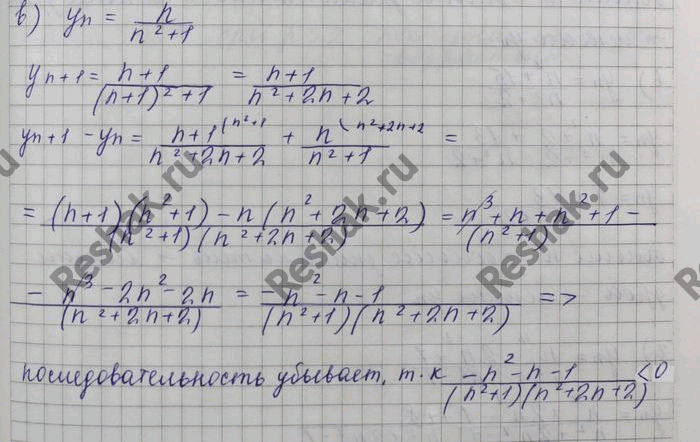 в) yn = n / (n² + 1)
yn+1 = (n+1) / ((n+1)² + 1) = (n+1) / (n² + 2n + 2)
yn+1 - yn = (n+1 (n²+1) / (n² + 2n + 2) + (n (n²+2n+2) / (n² + 1) =
= ((n+1)(n²+1) - n(n² + 2n + 2)) / ((n²+1)(n² + 2n + 2)) = n³ + n + n² + 1 - / (n²+1)
- n³ - 2n² - 2n / (n² + 2n + 2) = (-n² - n - 1) / ((n²+1)(n² + 2n + 2)) =>
последовательность убывает, т.к (-n² - n - 1) / ((n²+1)(n² + 2n + 2)) < 0
Reshak.ru
Reshak.ru
Reshak.ru